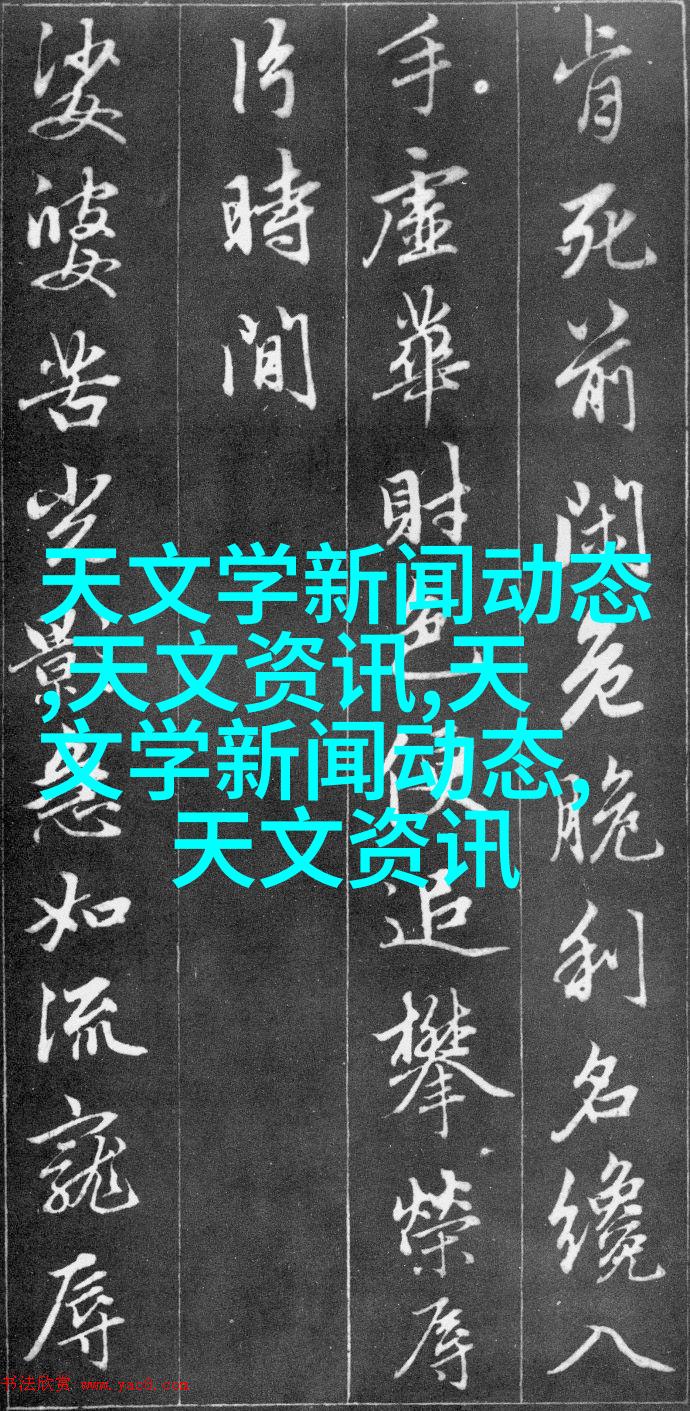 肯死前閑危脆利名纔入
手虚華財色便追攀榮辱
片時間
娑婆苦光影急如流寵辱
天文学新闻动态
,天文资讯,天
文学新闻动态,
天文资讯
书法欣赏 www.yac8.com